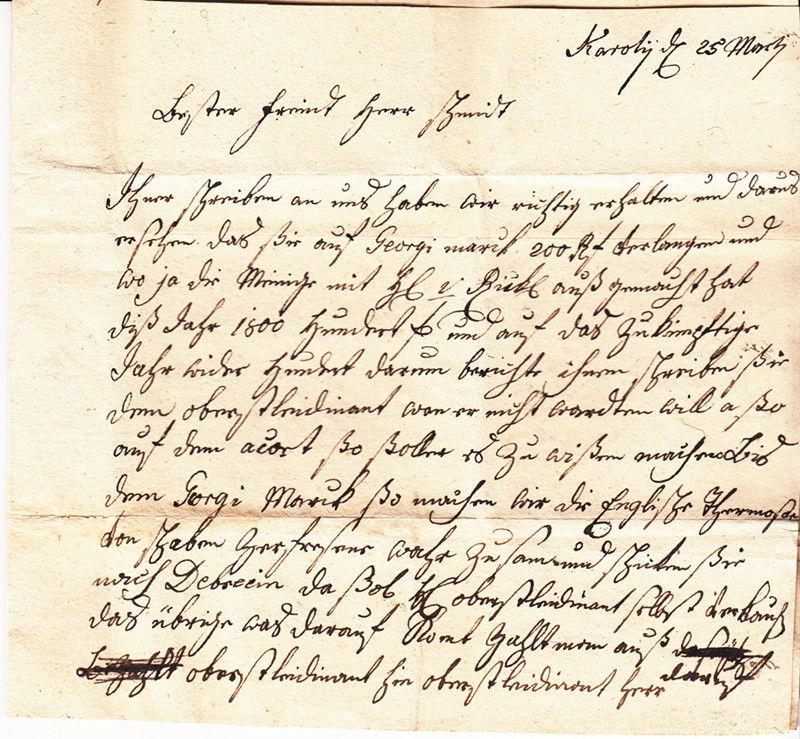 Karolÿ d 25 Marti
Bester freind Herr schmidt
Ihner schreiben an uns haben wir richtig erhalten und daraus
ersehen das sie auf Georgi marck 200 Rf verlangen und
wo ja die Meinige mit H v auß gemacht hat
diß Jahr 1800 Hundert f und auf das zukinpftige
Jahr wider Hundert darum berichte ihnen schreiben sie
dem oberstleidinant wan er nicht wardten will a so
auf dem acort so soller es zu wißen machen bis
dem Gorgi Marck so machen wir die Englische
von schaben Zerfresene wahr zusam und schicken sie
nach Debrecin da sol H oberstleidinant selbst verkaufen
das übrige was darauf komt zahlt man auß
bezahlt oberstleidinant hie oberstleidinant herr